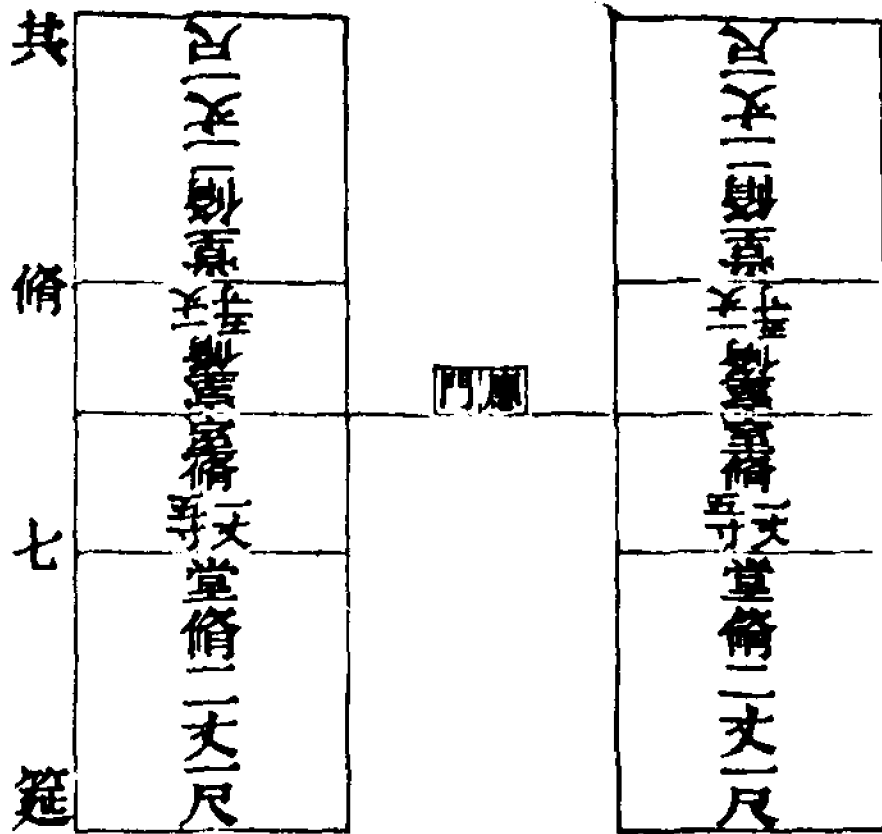 堂脩二丈一尺
室脩一丈五寸
室脩一丈五寸
堂脩二丈一尺
應門
堂脩二丈一尺
室脩一丈五寸
室脩一丈五寸
堂脩二丈一尺
其脩七筵